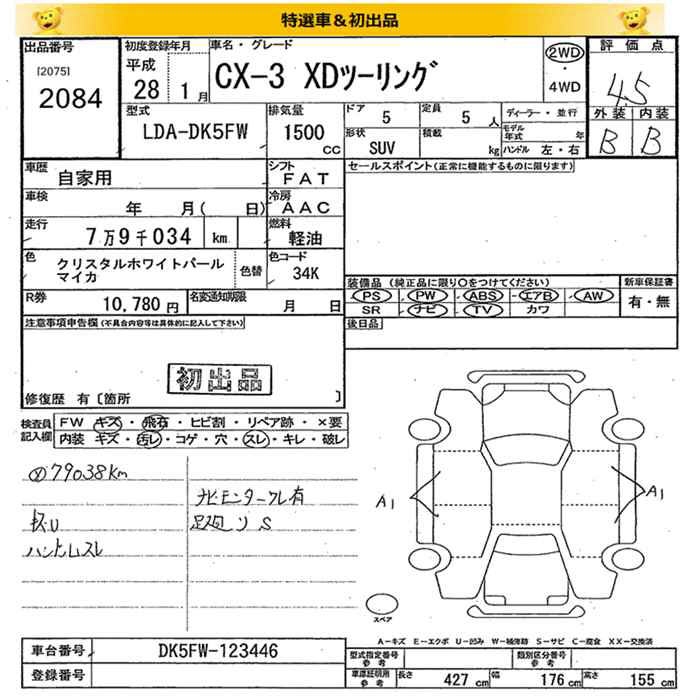 特選車&初出品
出品番号
[2075]
2084
初度登録年月
平成
28 1 月
車名・グレード
CX-3 XDツーリング
2WD
・
4WD
評価点
4.5
外装 内装
B B
型式
LDA-DK5FW
排気量
1500
CC
ドア
5
定員
5 人
形状
SUV
積載
kg
ディーラー・並行
モデル年式 年
ハンドル 左・右
車歴
自家用
シフト
FAT
セールスポイント(正常に機能するものに限ります)
車検
年 月( 日)
冷房
AAC
走行
7万9千034 km
燃料
軽油
色
クリスタルホワイトパールマイカ
色替
色コード
34K
R券
10,780 円
名変通知期限
月 日
装備品(純正品に限り○をつけてください)
PS PW ABS エアB AW
SR ナビ TV カワ
新車保証書
有・無
後日品
注意事項申告欄(不具合内容等は具体的に記入して下さい)
初出品
修復歴 有〔箇所 〕
検査員記入欄
FW キズ・飛石・ヒビ割・リペア跡・×要
内装 キズ・汚レ・コゲ・穴・スレ・キレ・破レ
79038km
ナビモニターワレ有
足廻リ S
ハンドルスレ
A1
A1
スペア
A-キズ E-エクボ U-凹み W-補修跡 S-サビ C-腐食 XX-交換済
車台番号
DK5FW-123446
登録番号
型式指定番号
参考
類別区分番号
参考
車庫証明用
参考
長さ 427 cm
幅 176 cm
高さ 155 cm